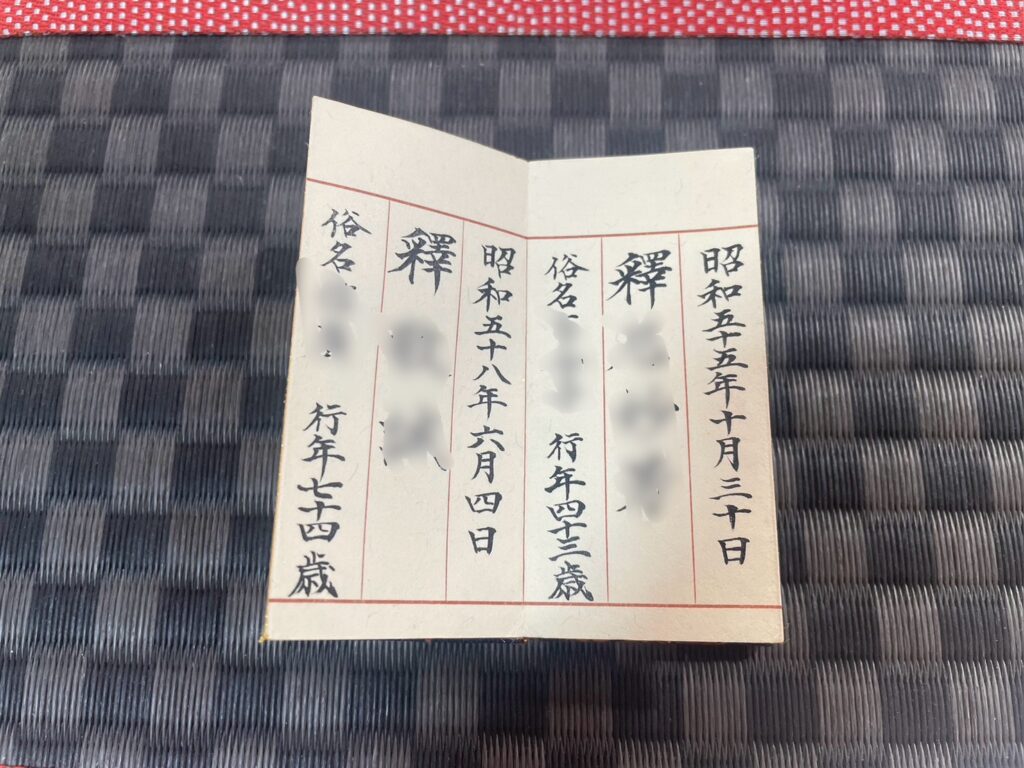 昭和五十五年十月三十日
釋
俗名
行年四十三歳
昭和五十八年六月四日
釋
俗名
行年七十四歳